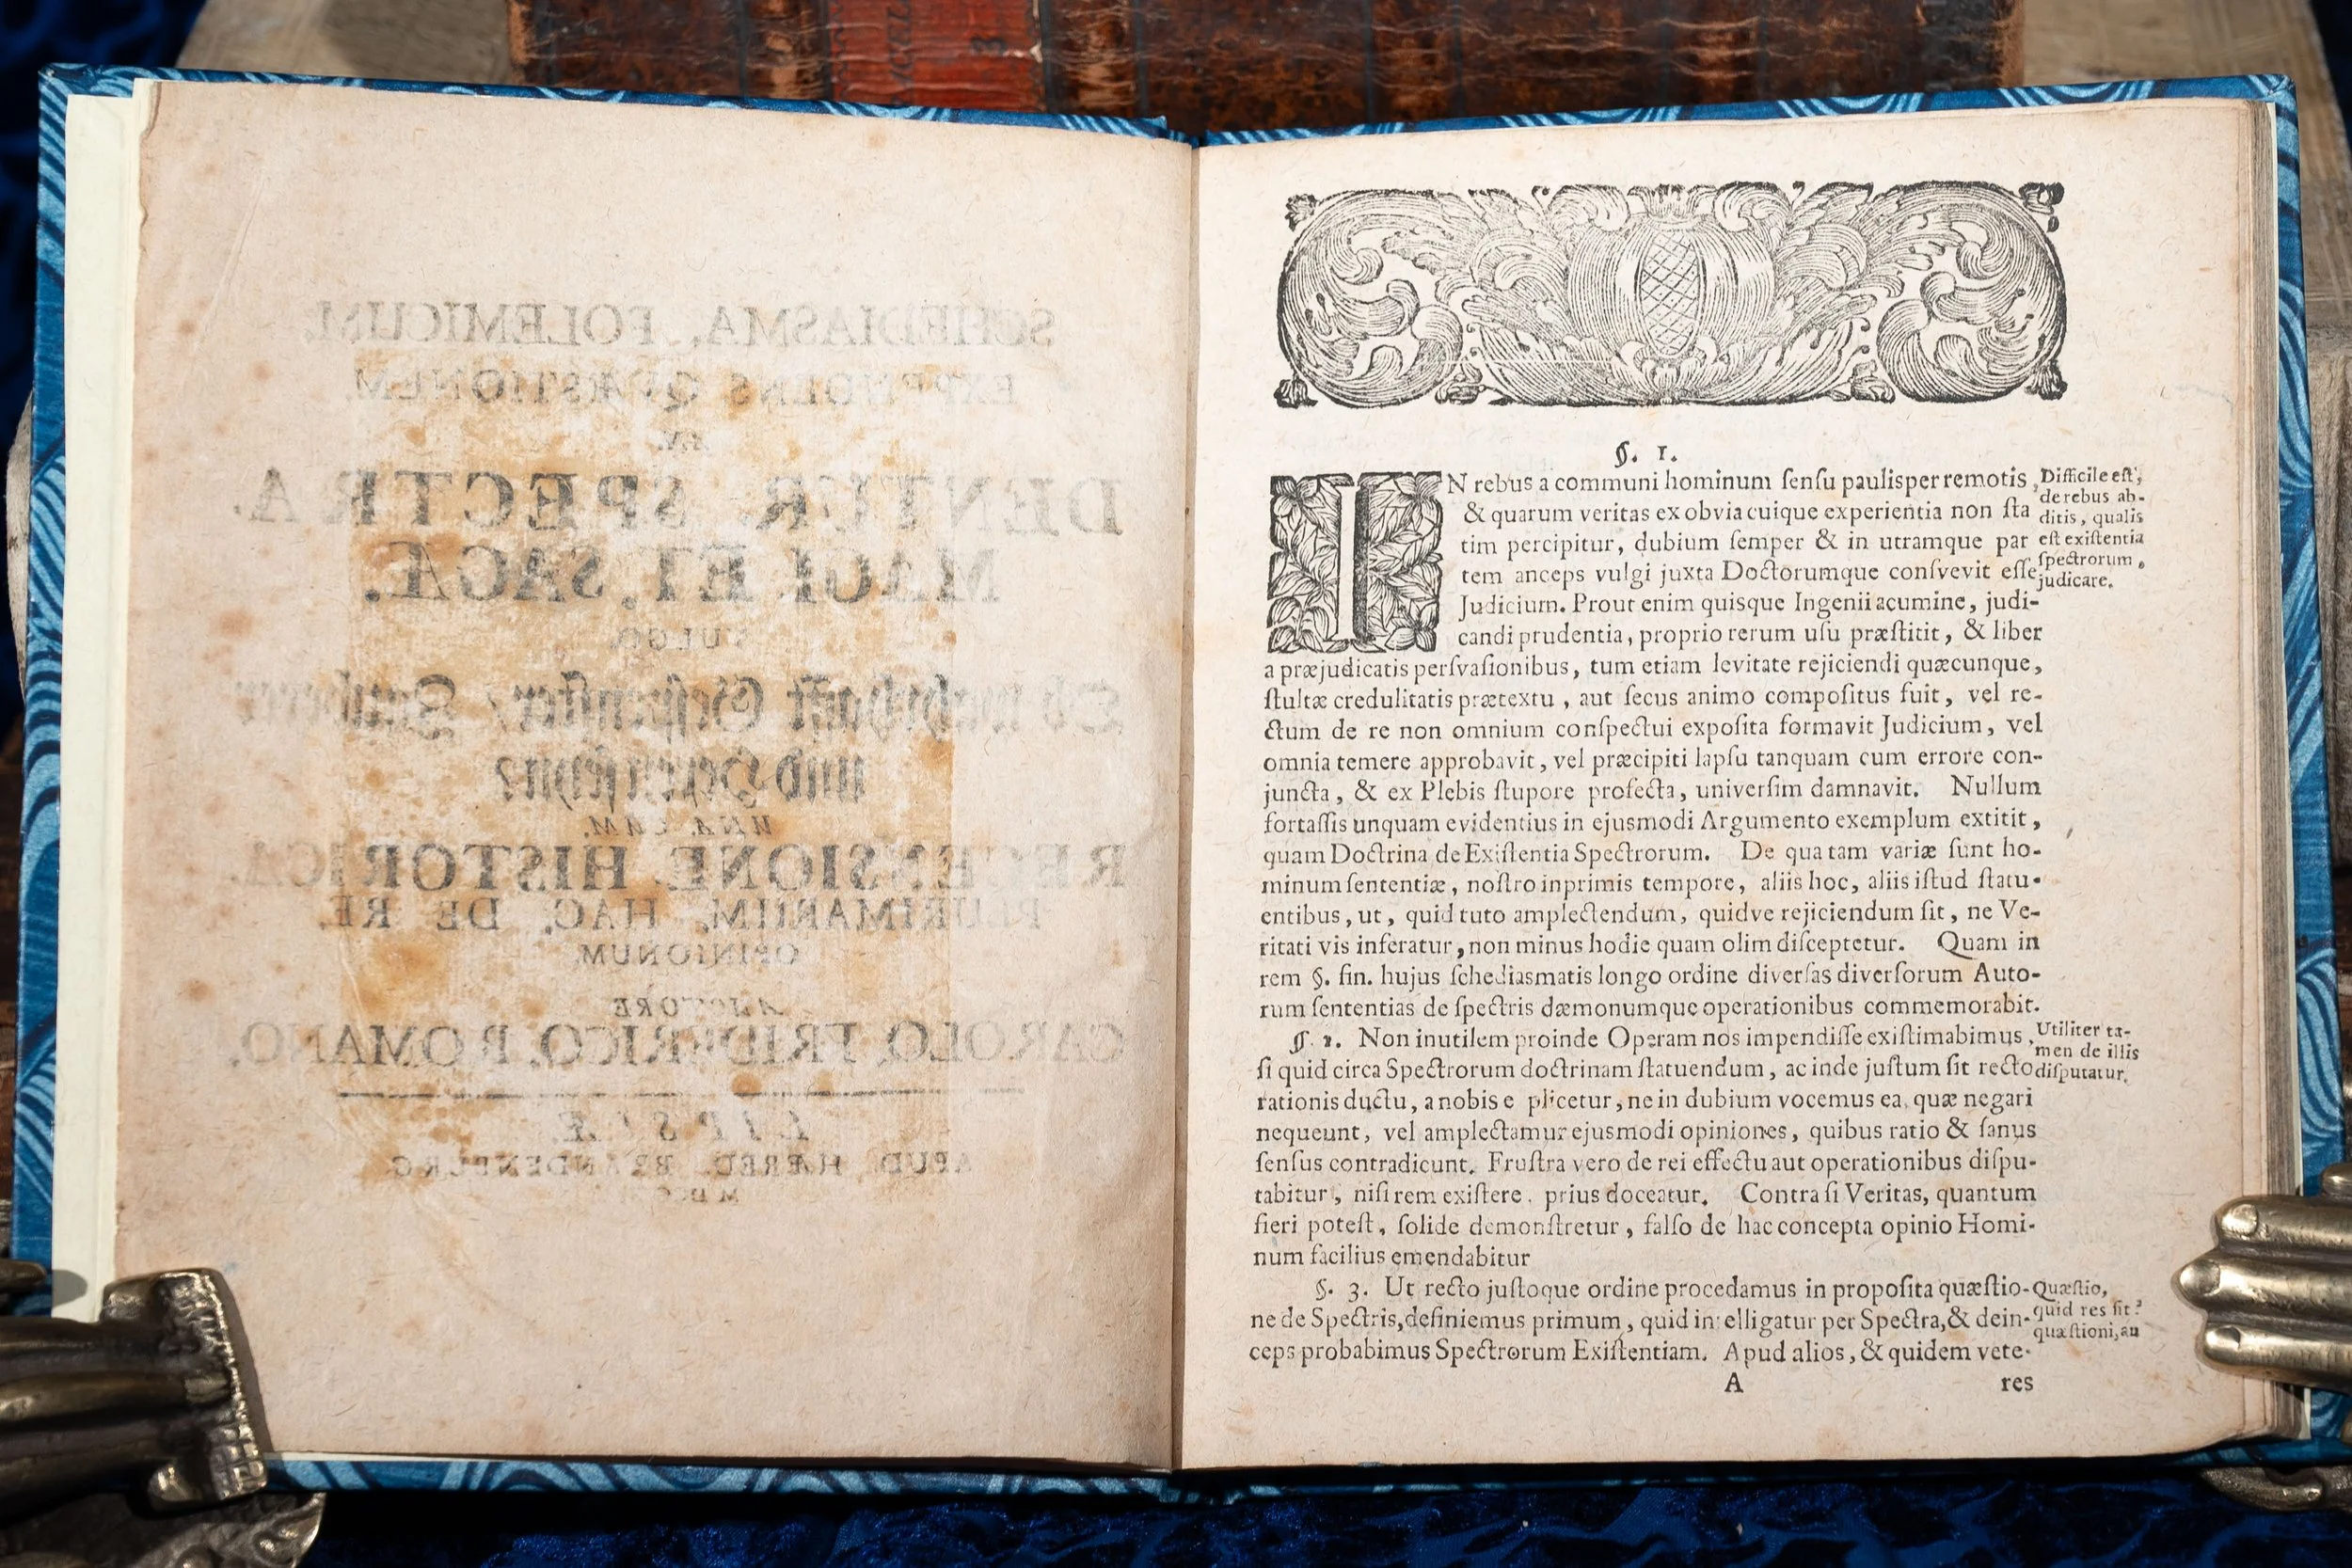 SCHEDIASMA, POLEMICUM,
EXPENDENS QVÆSTIONEM,
AN.
DENTUR. SPECTRA.
MAGI. ET. SAGÆ.
VULGO.
Ob wurcklich Gespenster / Zauberer
und Hexen seyn?
UNA. CUM.
RECENSIONE. HISTORICA.
PLURIMARUM. HAC. DE RE.
OPINIONUM
AUCTORE
CAROLO. FRIDERICO. ROMANO.
LIPSIÆ.
APUD. HÆRED. BRANDENBURG.
§. 1.
IN rebus a communi hominum ſenſu paulisper remotis,
& quarum veritas ex obvia cuique experientia non ſta
tim percipitur, dubium ſemper & in utramque par
tem anceps vulgi juxta Doctorumque conſvevit eſſe
Judicium. Prout enim quisque Ingenii acumine, judi-
candi prudentia, proprio rerum uſu præſtitit, & liber
a præjudicatis perſvaſionibus, tum etiam levitate rejiciendi quæcunque,
ſtultæ credulitatis prætextu, aut ſecus animo compoſitus fuit, vel re-
ctum de re non omnium conſpectui expoſita formavit Judicium, vel
omnia temere approbavit, vel præcipiti lapſu tanquam cum errore con-
juncta, & ex Plebis ſtupore profecta, univerſim damnavit. Nullum
fortaſſis unquam evidentius in ejusmodi Argumento exemplum extitit,
quam Doctrina de Exiſtentia Spectrorum. De qua tam variæ ſunt ho-
minum ſententiæ, noſtro inprimis tempore, aliis hoc, aliis iſtud ſtatu-
entibus, ut, quid tuto amplectendum, quidve rejiciendum ſit, ne Ve-
ritati vis inferatur, non minus hodie quam olim diſceptetur. Quam in
rem §. fin. hujus ſchediasmatis longo ordine diverſas diverſorum Auto-
rum ſententias de ſpectris dæmonumque operationibus commemorabit.
Difficile eſt,
de rebus ab-
ditis, qualis
eſt exiſtentia
ſpectrorum,
judicare.
§. 2. Non inutilem proinde Operam nos impendiſſe exiſtimabimus,
ſi quid circa Spectrorum doctrinam ſtatuendum, ac inde juſtum ſit recto
rationis ductu, a nobis e plicetur, ne in dubium vocemus ea, quæ negari
nequeunt, vel amplectamur ejusmodi opiniones, quibus ratio & ſanus
ſenſus contradicunt. Fruſtra vero de rei effectu aut operationibus diſpu-
tabitur, niſi rem exiſtere. prius doceatur. Contra ſi Veritas, quantum
fieri poteſt, ſolide demonſtretur, falſo de hac concepta opinio Homi-
num facilius emendabitur
Utiliter ta-
men de illis
diſputatur.
§. 3. Ut recto juſtoque ordine procedamus in propoſita quæſtio-
ne de Spectris, definiemus primum, quid in elligatur per Spectra, & dein-
ceps probabimus Spectrorum Exiſtentiam. Apud alios, & quidem vete-
Quæſtio,
quid res ſit?
quæſtioni, an
A res